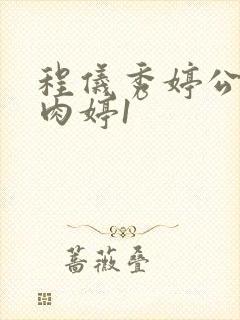 程儀秀婷公
肉婷1
蔷薇叠